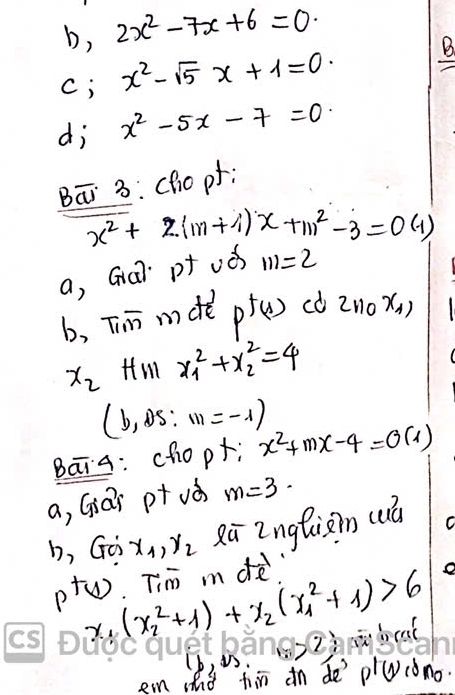 b, 2x² - 7x + 6 = 0.
c; x² - √5 x + 1 = 0.
d; x² - 5x - 7 = 0.
Bài 3: cho pt:
x² + 2(m+1)x + m² - 3 = 0 (1)
a, Giải pt với m=2
b, Tìm m để pt(1) có 2 no x₁,
x₂ tm x₁² + x₂² = 4
(b, ĐS: m = -1)
Bài 4: cho pt: x² + mx - 4 = 0 (1)
a, Giải pt với m=3.
b, Gọi x₁, x₂ là 2 nghiệm của
pt(1). Tìm m để:
x₁(x₂²+1) + x₂(x₁²+1) > 6
CS Được quét bằng CamScan
(b, ĐS: m>2)
em nhớ tìm đk để pt(1) có no.